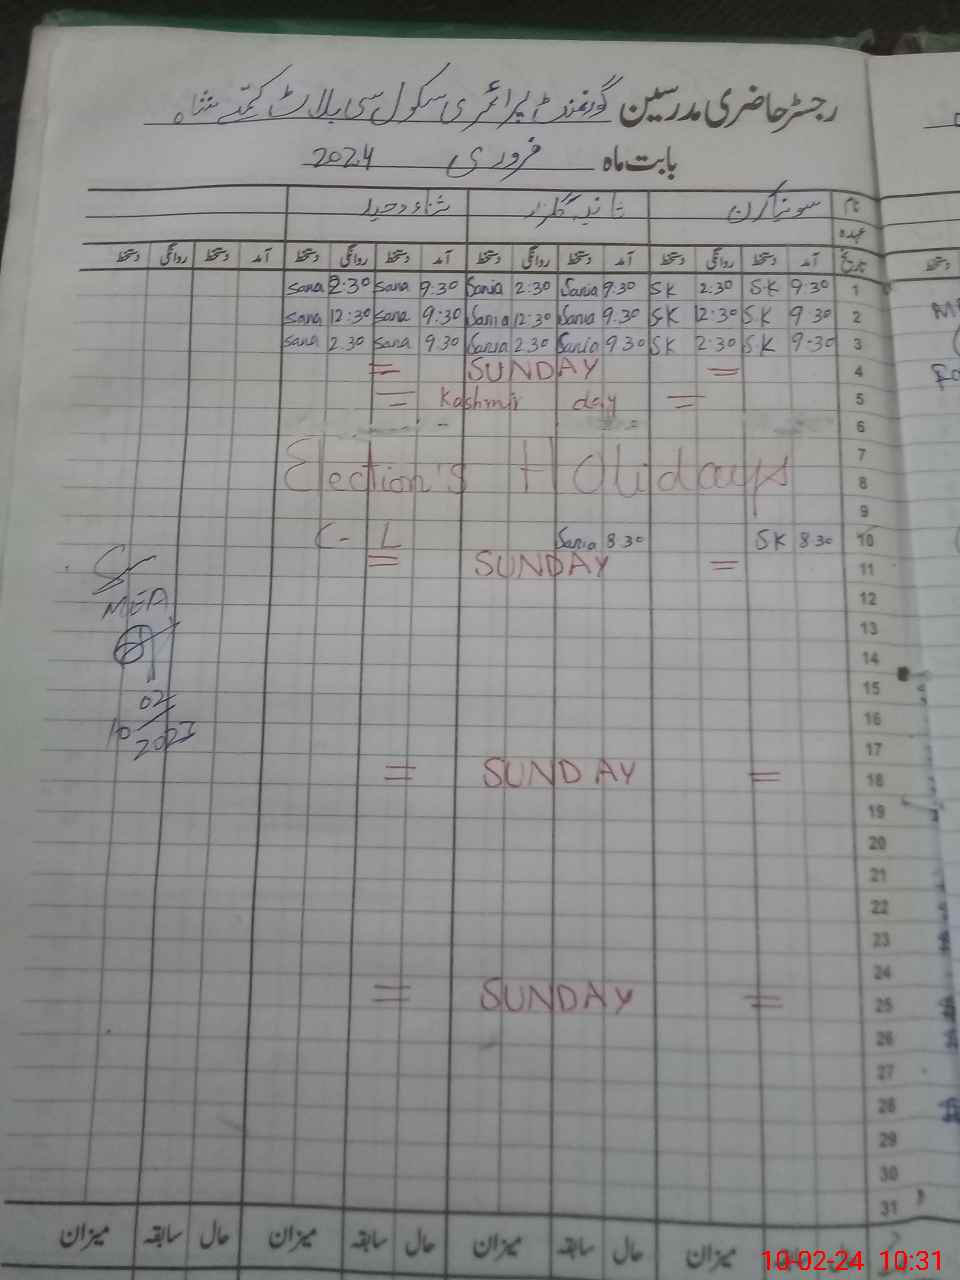 رجسٹر حاضری مدرسین گورنمنٹ پرائمری سکول سی پلاٹ
بابت ماہ فروری 2024
نام سونیا کرن ثانیہ گلزار ثناء وحید
عہدہ
تاریخ آمد دستخط روانگی دستخط آمد دستخط روانگی دستخط آمد دستخط روانگی دستخط آمد دستخط روانگی دستخط
1 9.30 S.K 2:30 SK 9.30 Sania 2:30 Sania 9.30 Sana 2.30 Sana
2 9.30 S.K 12:30 SK 9.30 Sania 12:30 Sania 9:30 Sana 12:30 Sana
3 9.30 S.K 2:30 SK 9.30 Sania 2.30 Sania 9.30 Sana 2.30 Sana
4 = SUNDAY =
5 = Kashmir day =
6
7
8 Election's Holidays
9
10 8.30 SK 8.30 Sania C-L
11 = SUNDAY =
12
13
14
15
16
17
18 = SUNDAY =
19
20
21
22
23
24
25 = SUNDAY =
26
27
28
29
30
31
MEA
02
10
حال سابقہ میزان حال سابقہ میزان حال سابقہ میزان حال سابقہ میزان
10-02-24 10:31